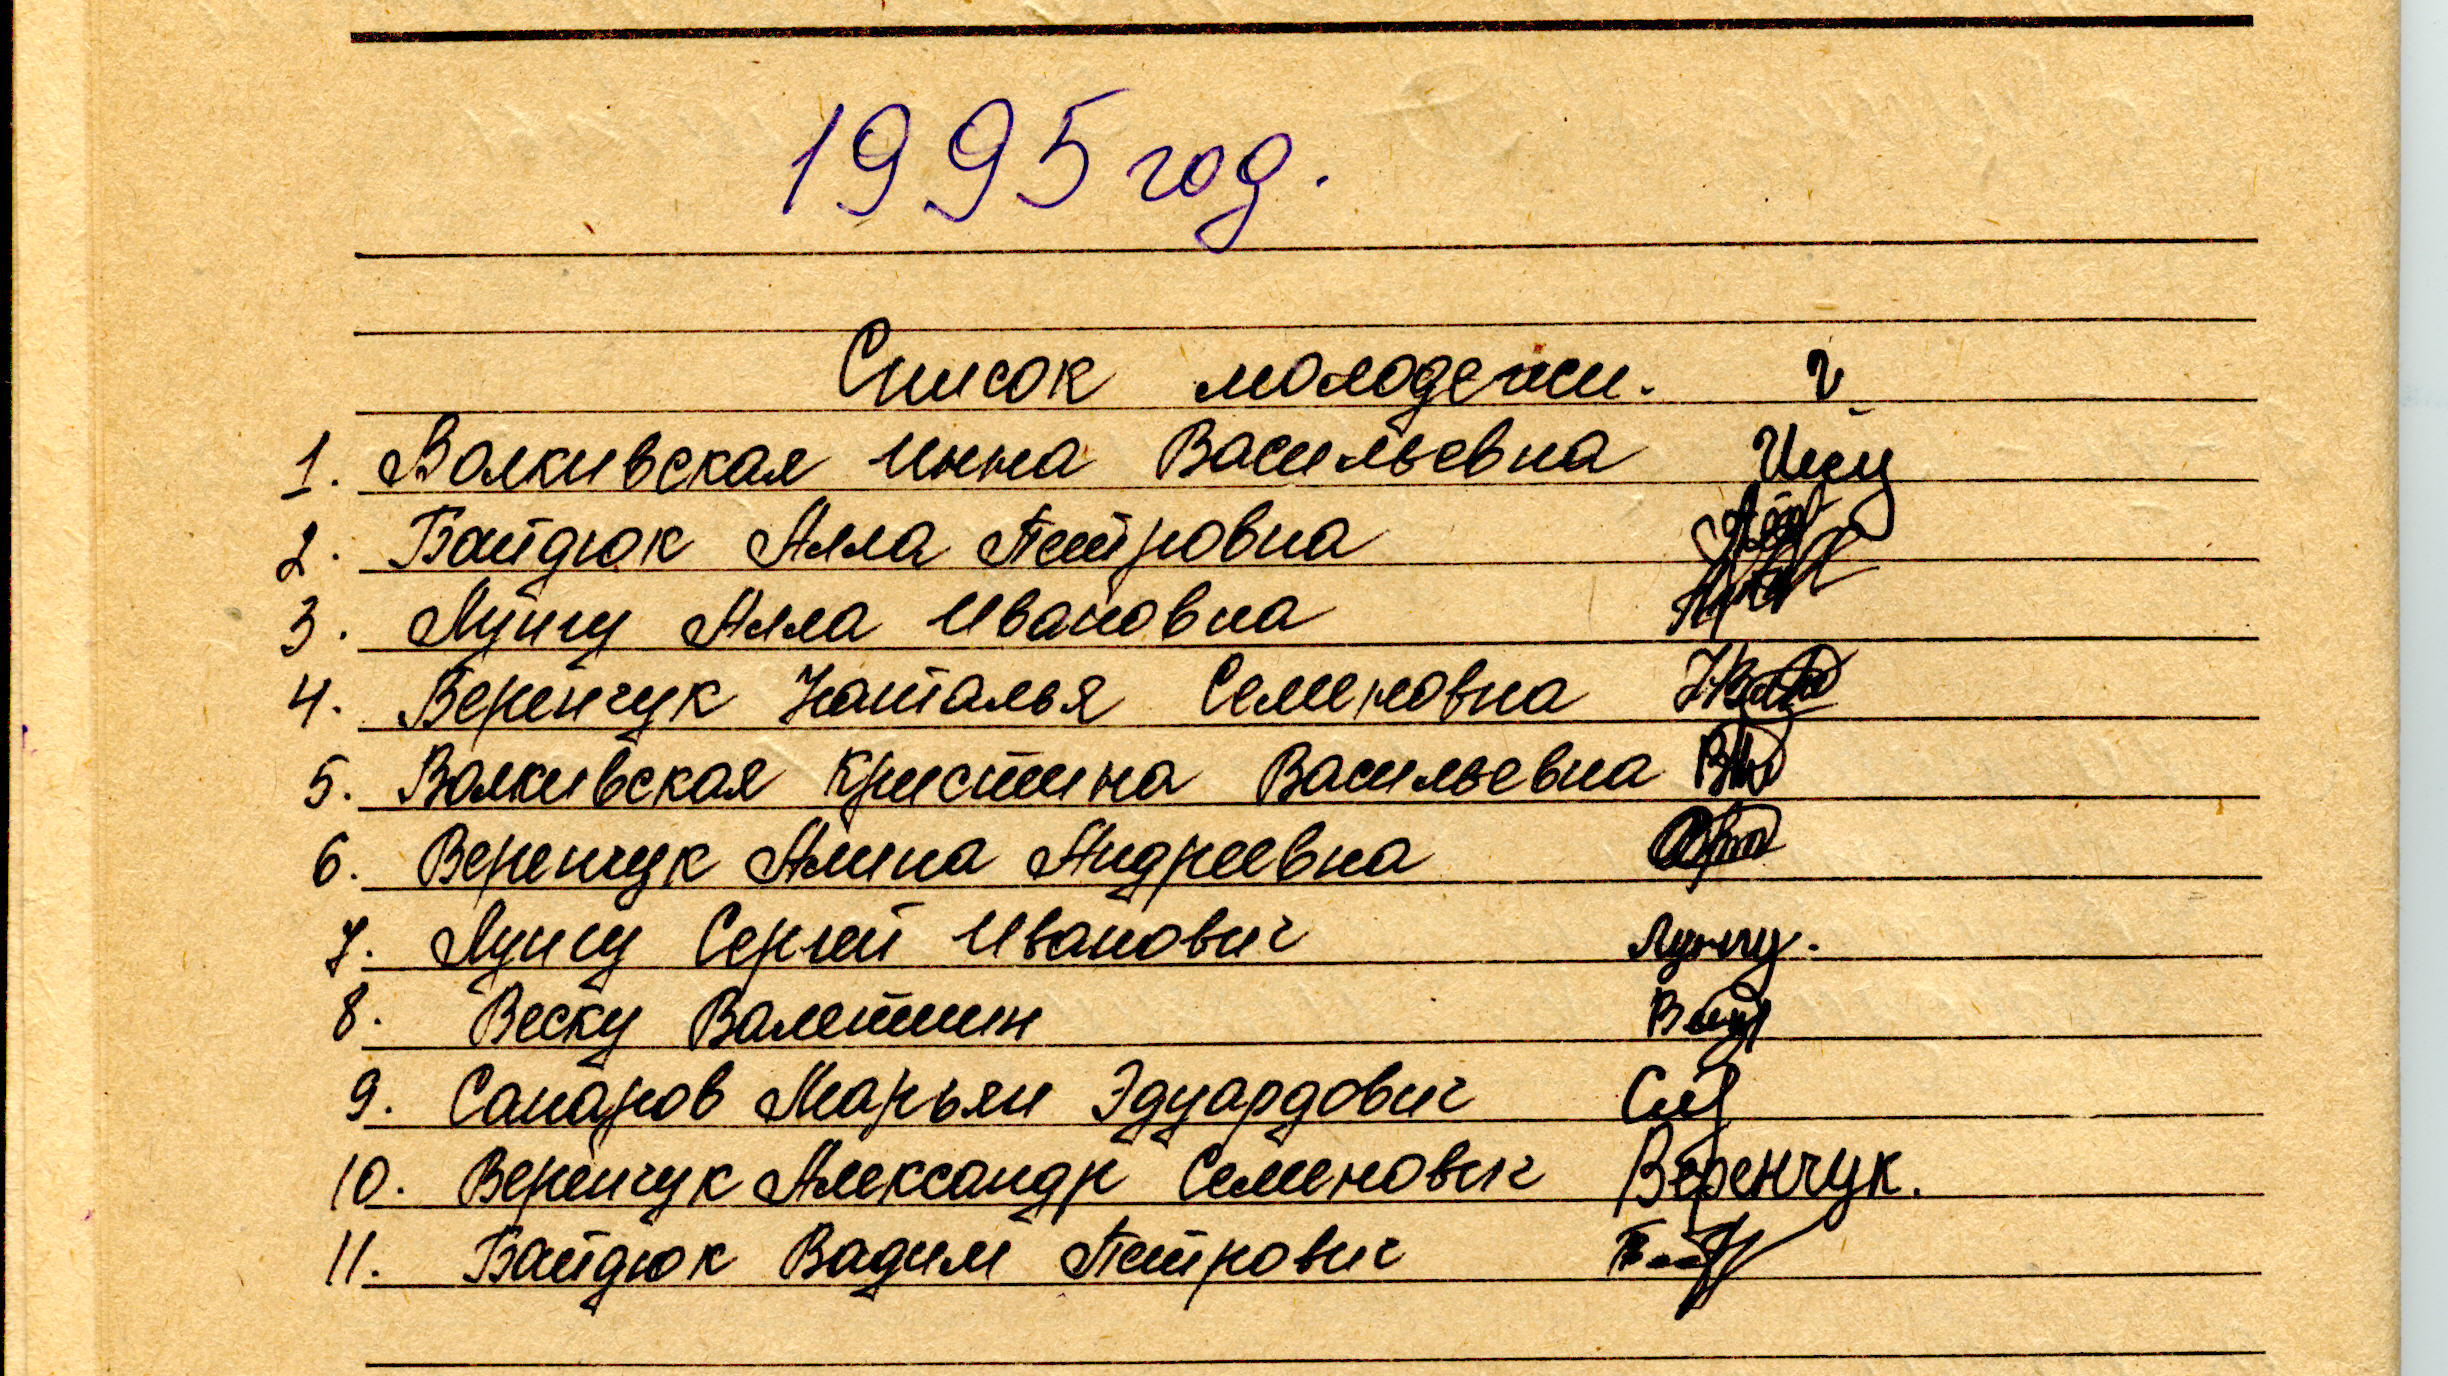 1995 год.
Список молодежи.
1. Волкивская Инна Васильевна
2. Байдюк Алла Петровна
3. Лунгу Алла Ивановна
4. Веренчук Наталья Семеновна
5. Волкивская Кристина Васильевна
6. Веренчук Алина Андреевна
7. Лунгу Сергей Иванович Лунгу.
8. Веску Валентин
9. Сапаров Марьян Эдуардович
10. Веренчук Александр Семенович Веренчук.
11. Байдюк Вадим Петрович